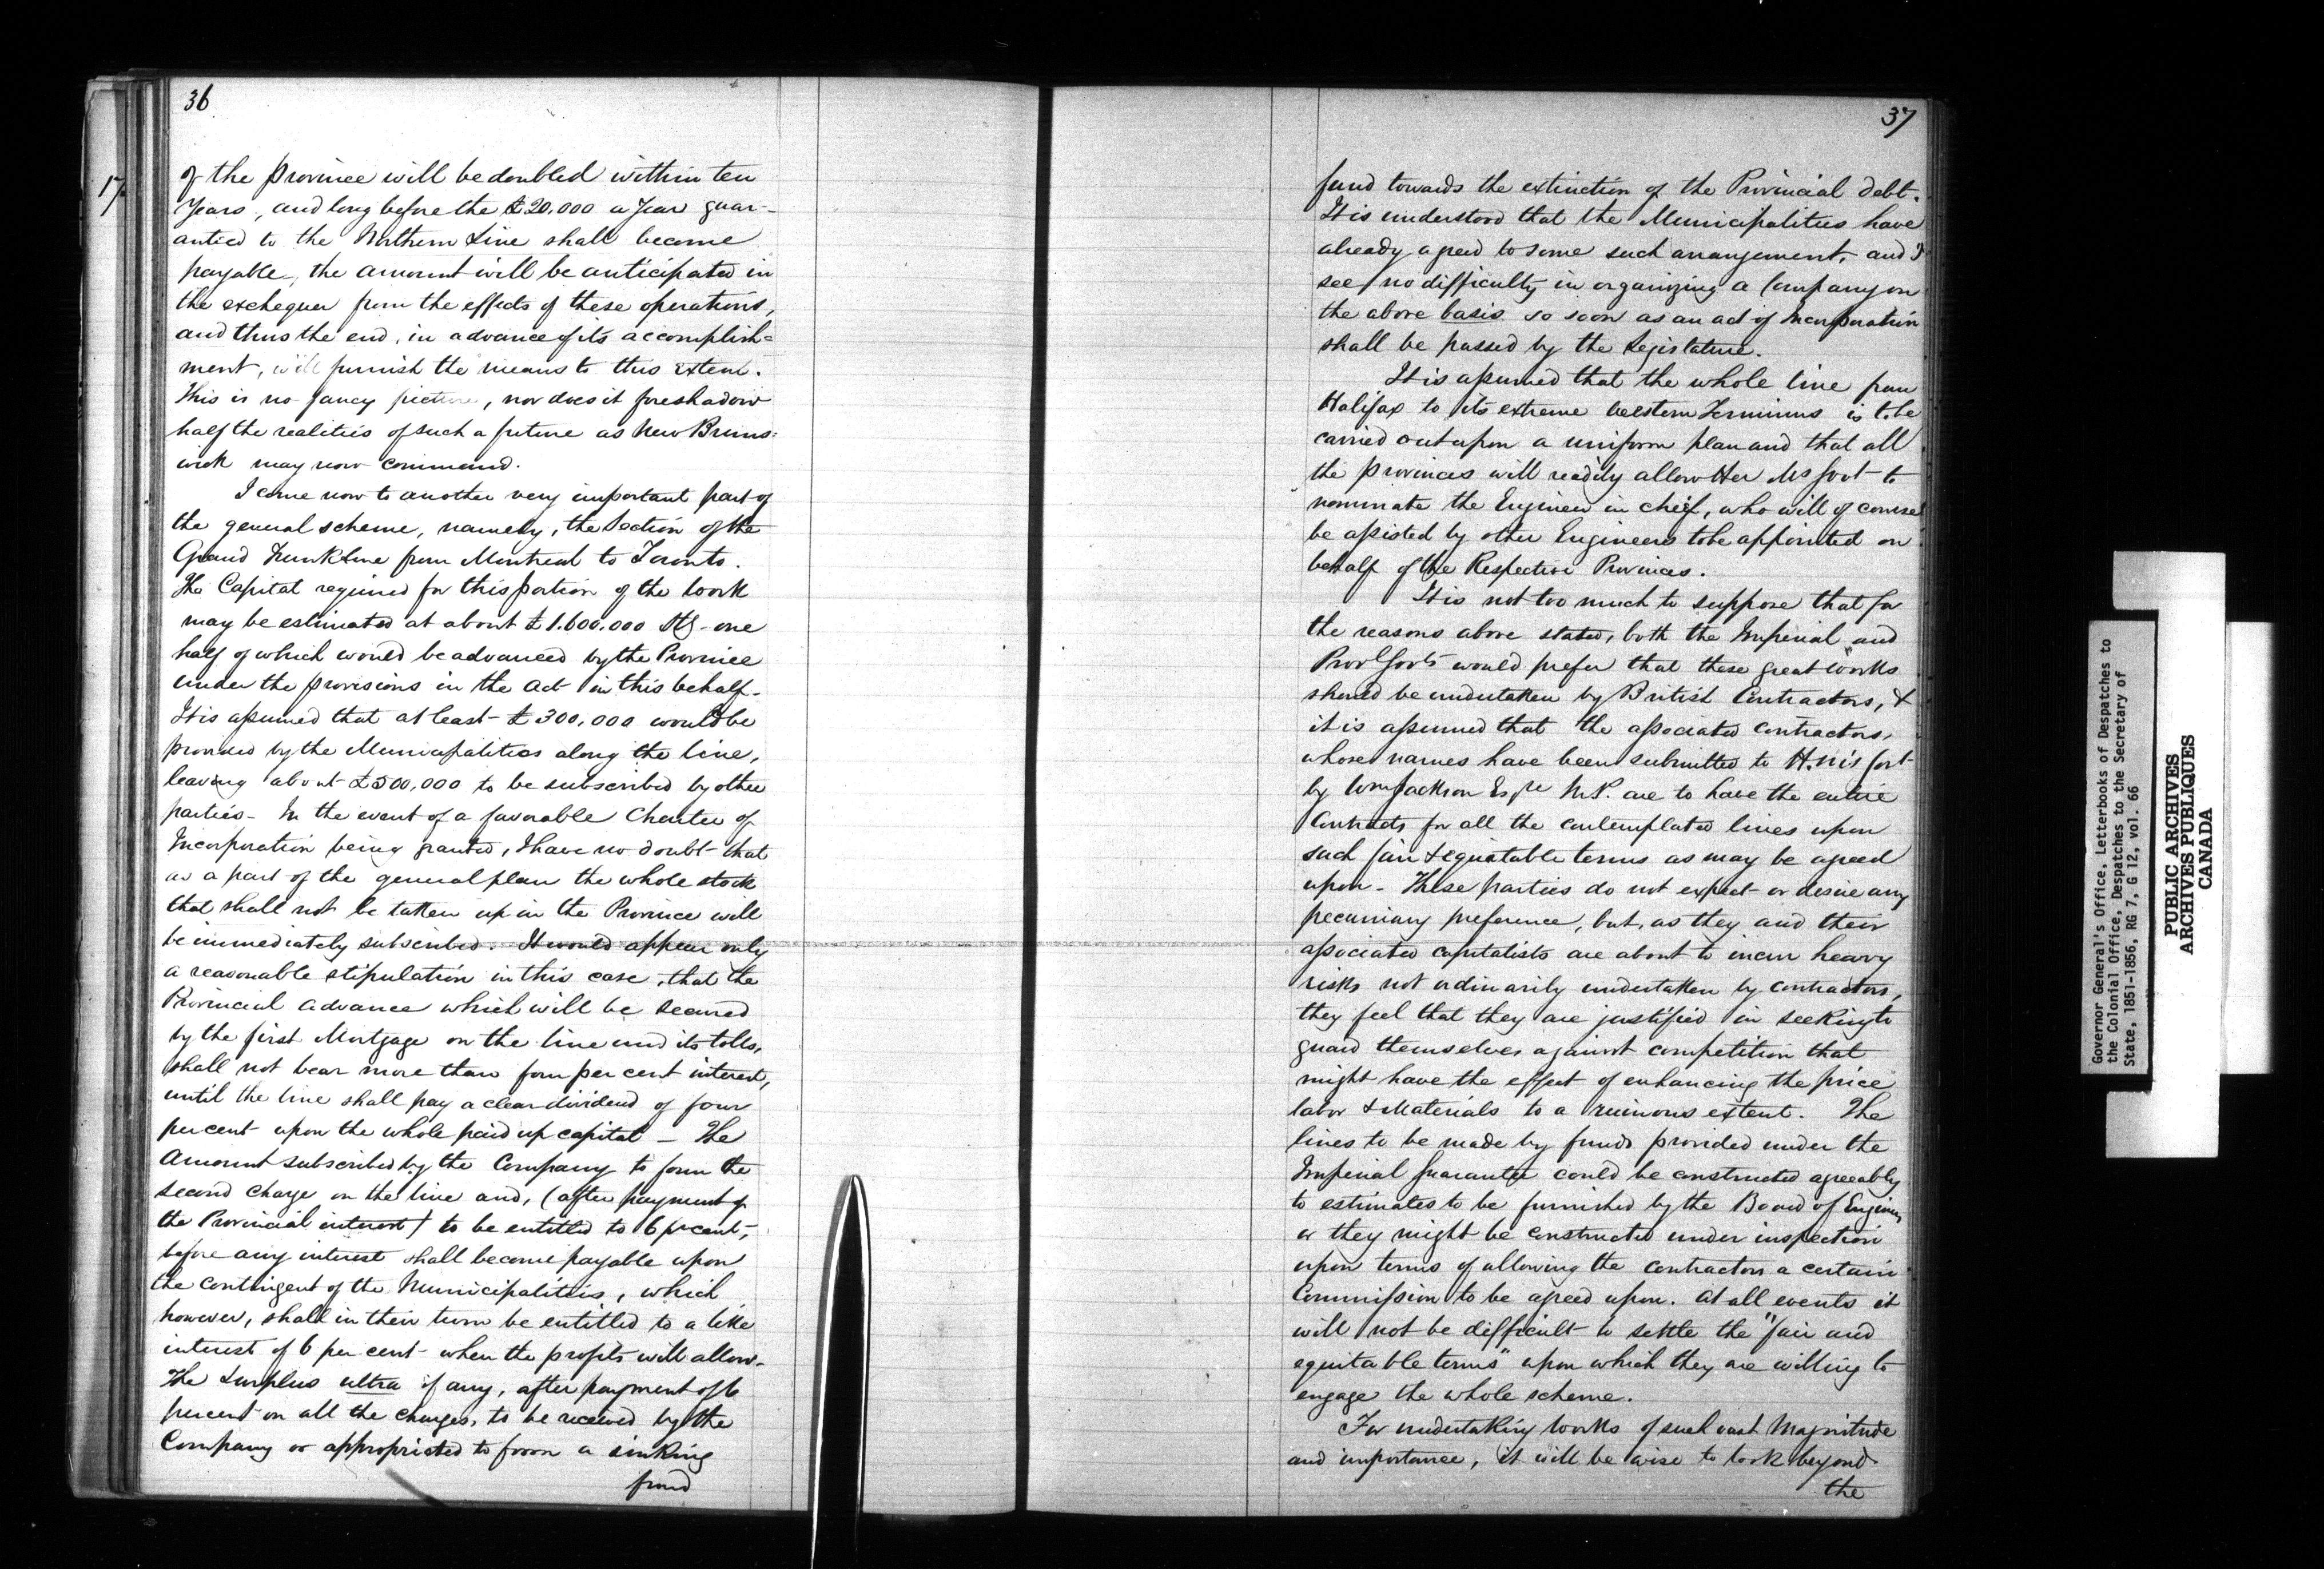 36
17
of the province will be doubled within ten
Years, and long before the £20.000 a Year guar-
antied to the Northern Line shall become
payable, the amount will be anticipated in
the exchequer from the effects of these operations,
and thus the end, in advance of its accomplish=
ment, will furnish the means to this extent.
This is no fancy picture, nor does it foreshadow
half the realities of such a future as New Bruns=
wick may now command.
I come now to another very important part of
the general scheme, namely, the Section of the
Grand Trunk Line from Montreal to Toronto.
The Capital required for this portion of the work
may be estimated at about £1.600.000 Stg - one
half of which would be advanced by the Province
under the provisions in the Act in this behalf.
It is assumed that at least £300,000 would be
provided by the Municipalities along the line,
leaving about £500,000 to be subscribed by other
parties - In the event of a favorable Charter of
Incorporation being granted, I have no doubt that
as a part of the general plan the whole stock
that shall not be taken up in the Province will
be immediately subscribed. It would appear only
a reasonable stipulation in this case, that the
Provincial advance which will be secured
by the first Mortgage on the line and its tolls,
shall not bear more than four per cent interest,
until the line shall pay a clear dividend of four
per cent upon the whole paid up capital - The
Amount subscribed by the Company to form the
second charge on the line and, (after payment of
the Provincial interest) to be entitled to 6 pr cent,
before any interest shall become payable upon
the contingent of the Municipalities, which
however, shall in their turn be entitled to a like
interest of 6 per cent when the profits will allow.
The Surplus ultra if any, after payment of 6
percent on all the charges, to be received by the
Company or appropriated to form a sinking
fund
37
fund towards the extinction of the Provincial debt.
It is understood that the Municipalities have
already agreed to some such arrangement, and I
see no difficulty in organizing a Company on
the above basis so soon as an act of Incorporation
shall be passed by the Legislature.
It is assumed that the whole line from
Halifax to its extreme Western Terminus is to be
carried out upon a uniform plan and that all
the provinces will readily allow Her Ms Govt to
nominate the Engineer in chief, who will of course
be assisted by other Engineers to be appointed on
behalf of the Respective Provinces.
It is not too much to suppose that for
the reasons above stated, both the Imperial and
Provl Govts would prefer that these great works
should be undertaken by British Contractors, &
it is assumed that the associated contractors,
whose names have been submitted to H.M's Govt
by Wm Jackson Esqre M.P. are to have the entire
Contracts for all the contemplated lines upon
such fair & equitable terms as may be agreed
upon - These parties do not expect or desire any
pecuniary preference, but, as they and their
associated capitalists are about to incur heavy
risks not ordinarily undertaken by contractors,
they feel that they are justified in seeking to
guard themselves against competition that
might have the effect of enhancing the price
labor & Materials to a ruinous extent. The
lines to be made by funds provided under the
Imperial Guarantee could be constructed agreeably
to estimates to be furnished by the Board of Engineers
or they might be constructed under inspection
upon terms of allowing the contractors a certain
Commission to be agreed upon. At all events it
will not be difficult to settle the "fair and
equitable terms" upon which they are willing to
engage the whole scheme.
For undertaking works of such vast Magnitude
and importance, it will be wise to look beyond
the
Governor General's Office, Letterbooks of Despatches to
the Colonial Office, Despatches to the Secretary of
State, 1851-1856, RG 7, G 12, vol. 66
PUBLIC ARCHIVES
ARCHIVES PUBLIQUES
CANADA